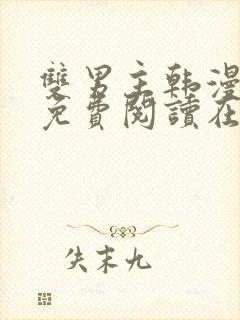 雙男主韩漫
免費閱讀在
失末九